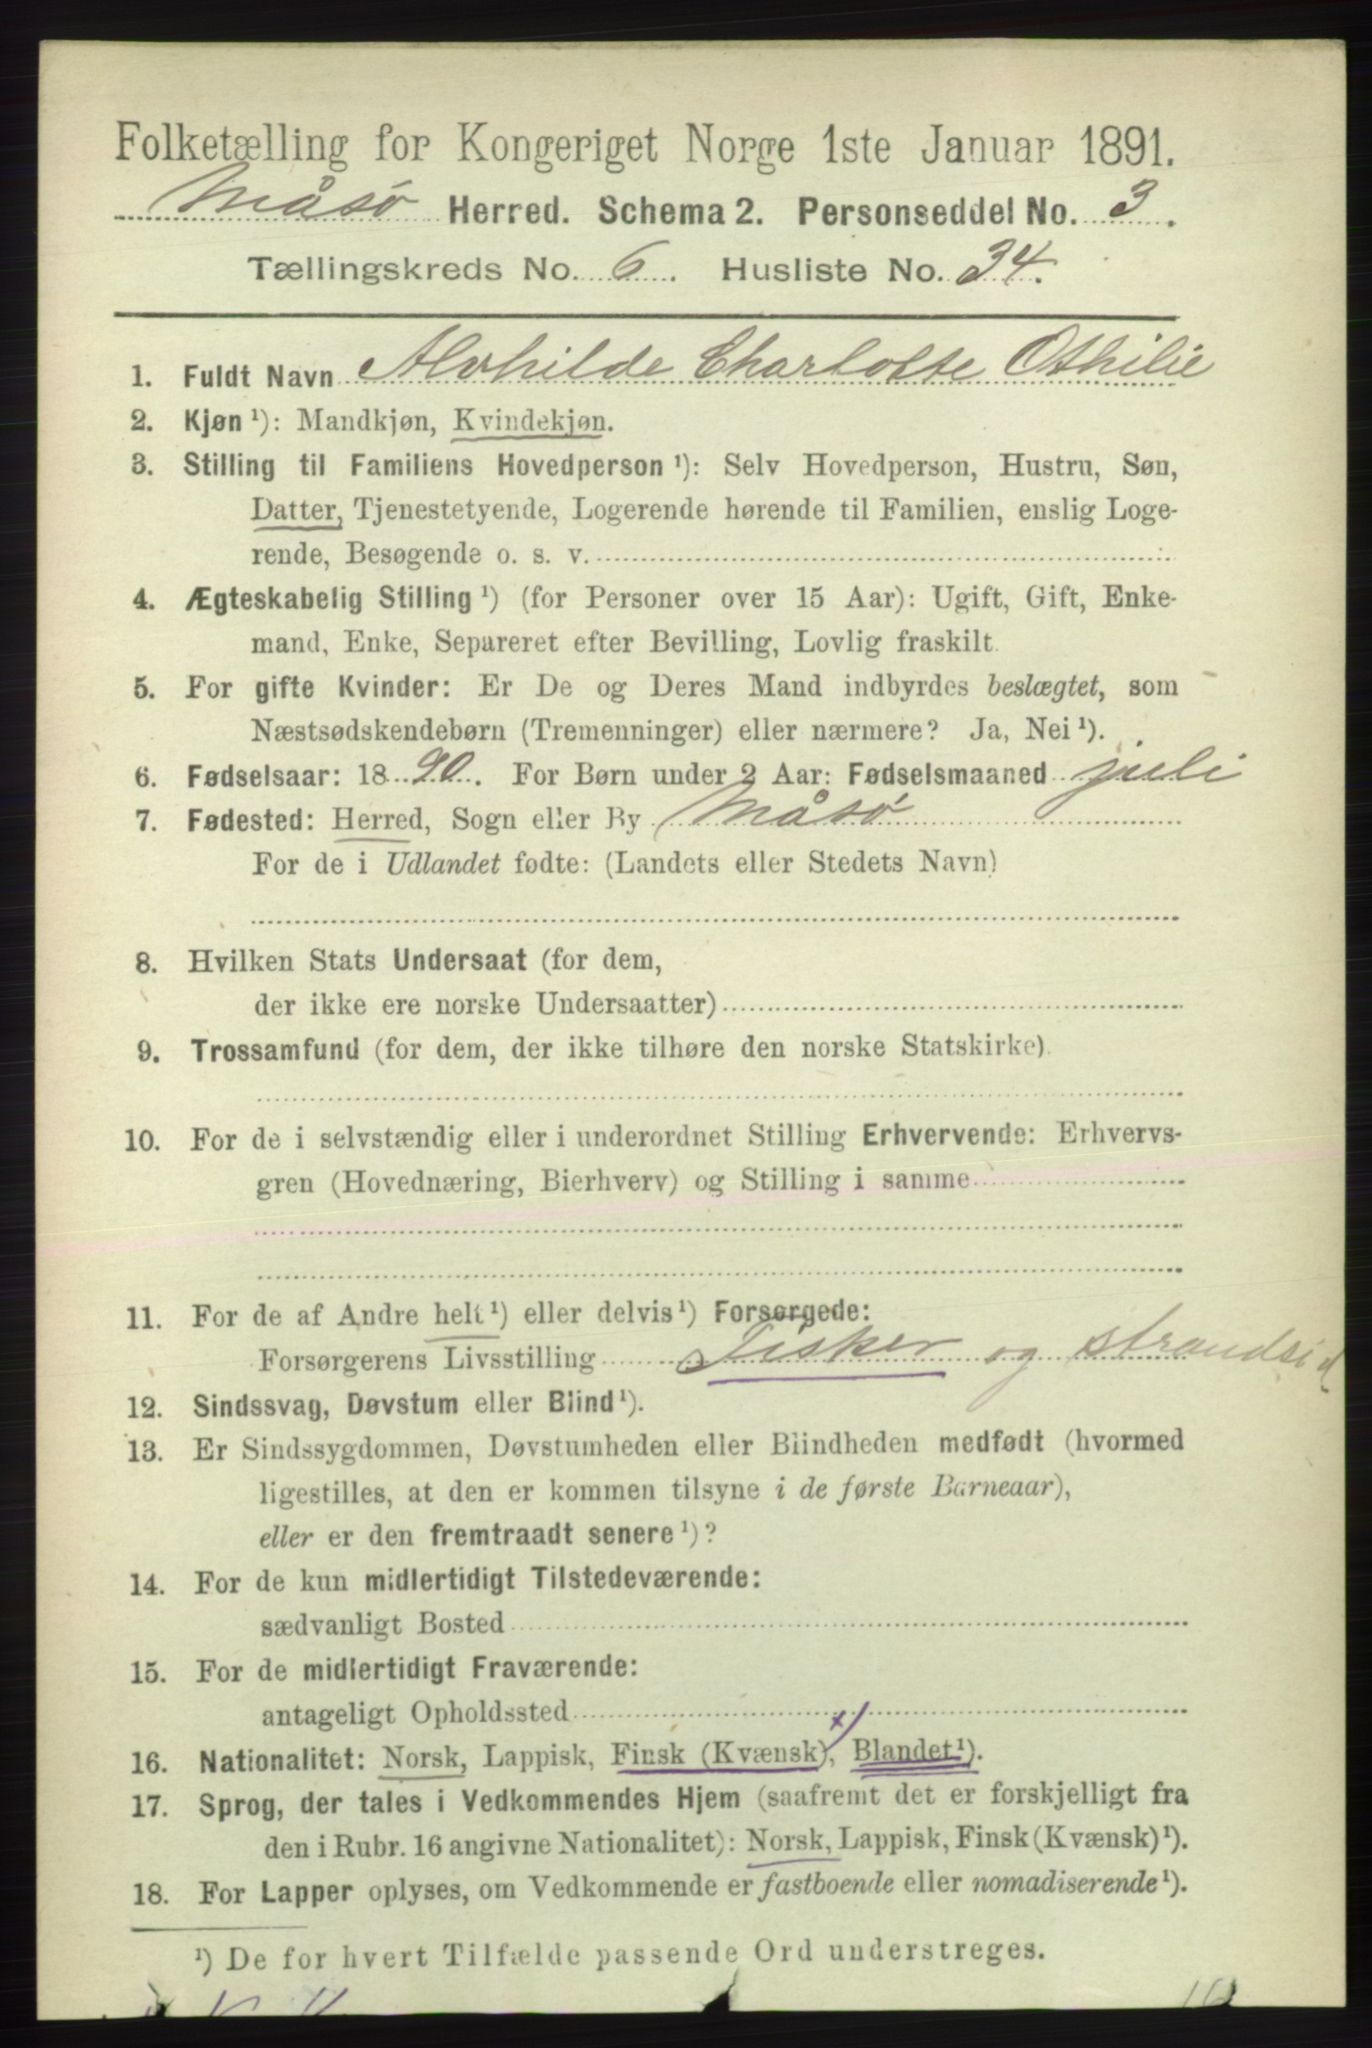 Folketælling for Kongeriget Norge 1ste Januar 1891.
Måsø Herred. Schema 2. Personseddel No. 3.
Tællingskreds No. 6. Husliste No. 34.
1. Fuldt Navn Alvhilde Charlotte Othilie
2. Kjøn ¹): Mandkjøn, Kvindekjøn.
3. Stilling til Familiens Hovedperson ¹): Selv Hovedperson, Hustru, Søn,
Datter, Tjenestetyende, Logerende hørende til Familien, enslig Loge-
rende, Besøgende o. s. v.
4. Ægteskabelig Stilling ¹) (for Personer over 15 Aar): Ugift, Gift, Enke-
mand, Enke, Separeret efter Bevilling, Lovlig fraskilt.
5. For gifte Kvinder: Er De og Deres Mand indbyrdes beslægtet, som
Næstsødskendebørn (Tremenninger) eller nærmere? Ja, Nei ¹).
6. Fødselsaar: 1890. For Børn under 2 Aar: Fødselsmaaned juli
7. Fødested: Herred, Sogn eller By Måsø
For de i Udlandet fødte: (Landets eller Stedets Navn)
8. Hvilken Stats Undersaat (for dem,
der ikke ere norske Undersaatter)
9. Trossamfund (for dem, der ikke tilhøre den norske Statskirke)
10. For de i selvstændig eller i underordnet Stilling Erhvervende: Erhvervs-
gren (Hovednæring, Bierhverv) og Stilling i samme
11. For de af Andre helt ¹) eller delvis ¹) Forsørgede:
Forsørgerens Livsstilling Fisker og strandsid
12. Sindssvag, Døvstum eller Blind ¹).
13. Er Sindssygdommen, Døvstumheden eller Blindheden medfødt (hvormed
ligestilles, at den er kommen tilsyne i de første Barneaar),
eller er den fremtraadt senere ¹)?
14. For de kun midlertidigt Tilstedeværende:
sædvanligt Bosted
15. For de midlertidigt Fraværende:
antageligt Opholdssted
16. Nationalitet: Norsk, Lappisk, Finsk (Kvænsk), Blandet ¹).
17. Sprog, der tales i Vedkommendes Hjem (saafremt det er forskjelligt fra
den i Rubr. 16 angivne Nationalitet): Norsk, Lappisk, Finsk (Kvænsk) ¹).
18. For Lapper oplyses, om Vedkommende er fastboende eller nomadiserende ¹).
¹) De for hvert Tilfælde passende Ord understreges.